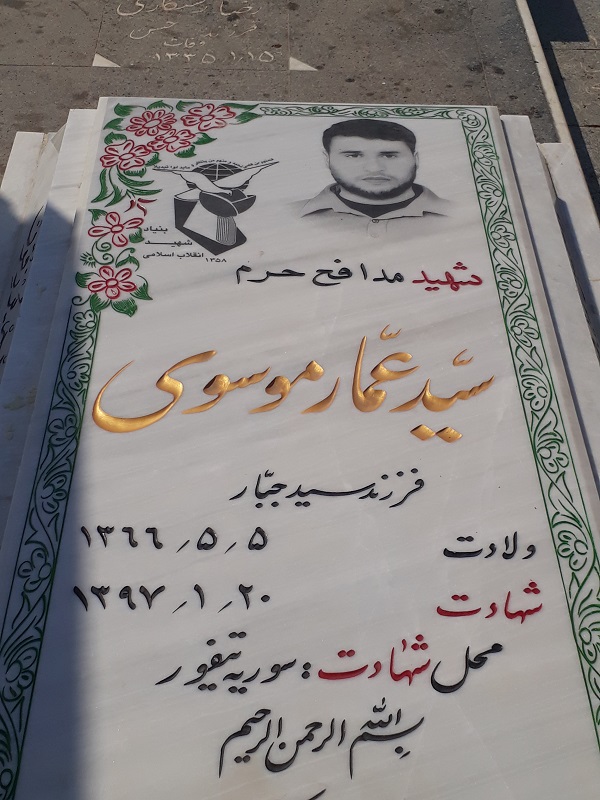 فرزند حسن
وفات
۱۳۳۵٫۱٫۱۵
بنیاد
شهید
انقلاب اسلامی
۱۳۵۸
شهید مدافع حرم
سیّد عمّار موسوی
فرزند سید جبّار
ولادت ۵٫ ۵٫ ۱۳۶۶
شهادت ۲۰٫ ۱٫ ۱۳۹۷
محل شهادت : سوریه تیفور
بسم الله الرحمن الرحیم